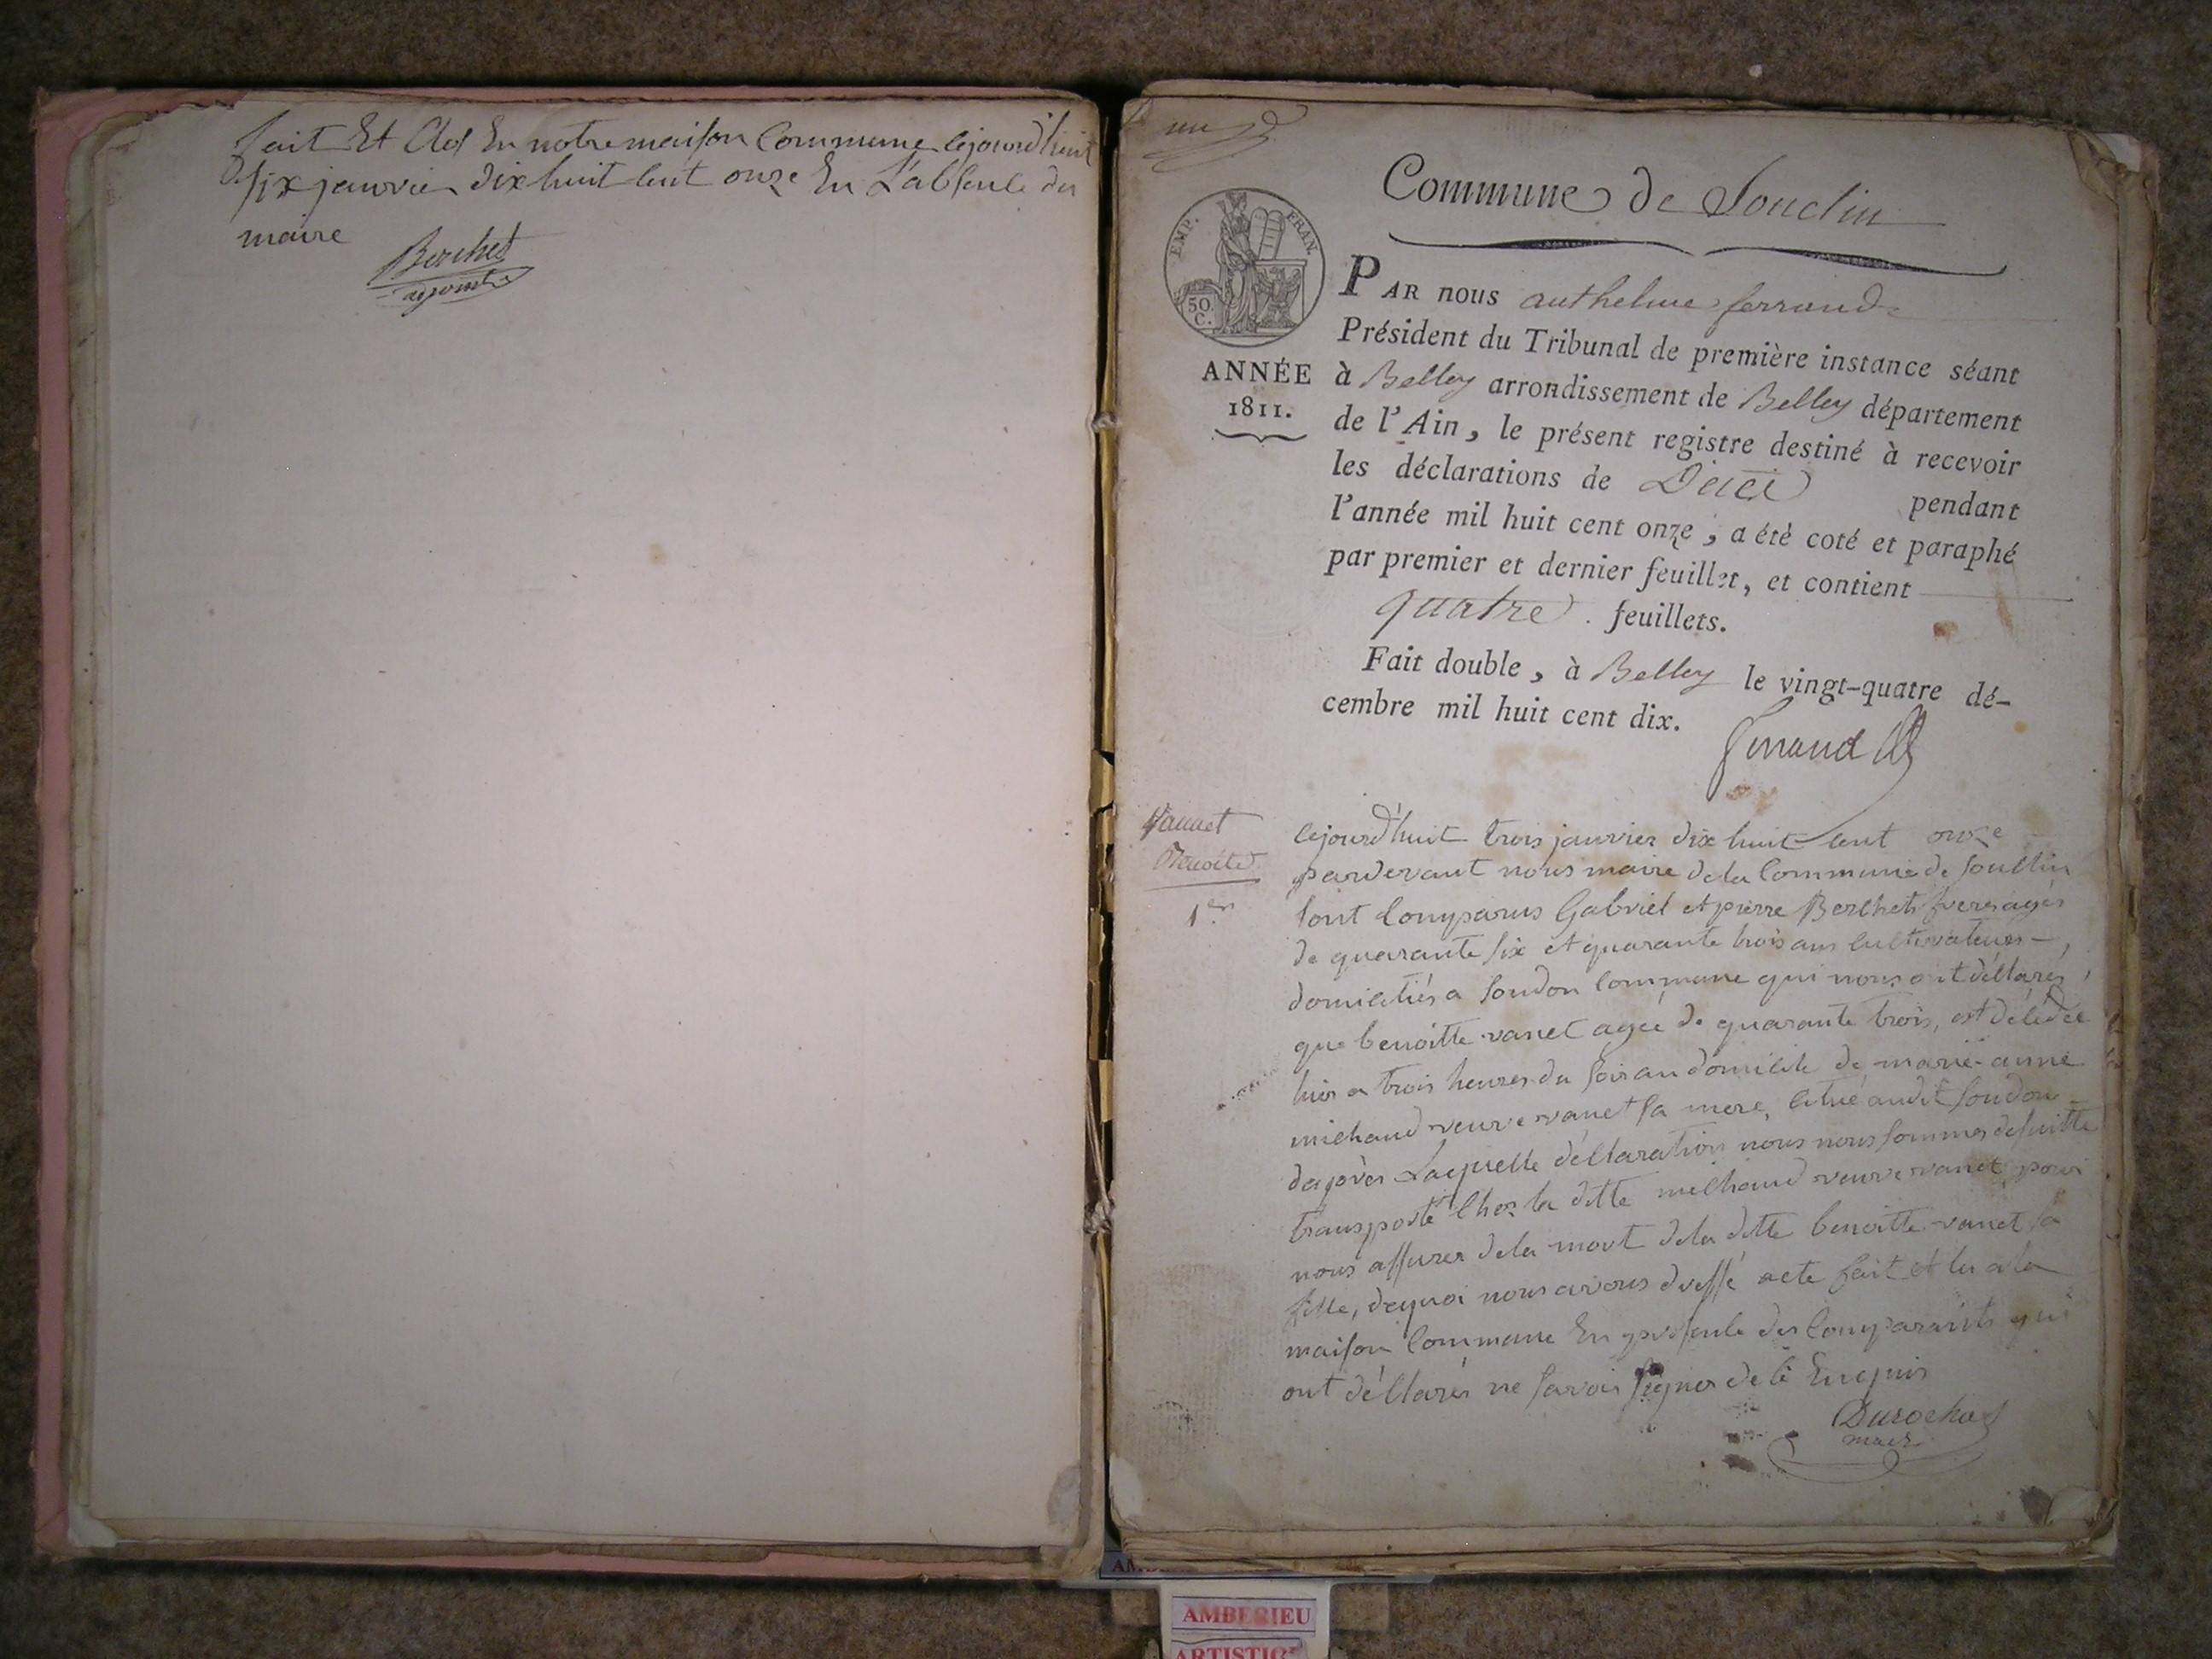 fait Et Clos En notre maison Commune cejourd'huit
six janvier dix huit cent onze En L'absence du
maire
Berchet
adjoint
un
Commune de Souclin
EMP. FRAN.
50 C.
ANNÉE
1811.
PAR nous anthelme ferrand
Président du Tribunal de première instance séant
à Belley arrondissement de Belley département
de l'Ain, le présent registre destiné à recevoir
les déclarations de Décès pendant
l'année mil huit cent onze, a été coté et paraphé
par premier et dernier feuillet, et contient
quatre feuillets.
Fait double, à Belley le vingt-quatre dé-
cembre mil huit cent dix.
ferrand
Vannet
Benoite
1er
cejourd'huit trois janvier dix huit cent onze
pardevant nous maire de la Commune de souclin
sont Comparus Gabriel et pierre Berchet freres agés
de quarante six et quarante trois ans cultivateurs
domiciliés a soudon commune qui nous ont déclarés
que benoitte vanet agée de quarante trois, est décédée
hier a trois heures du soir au domicile de marie-anne
michaud veuve vanet sa mere, situé audit soudon
daprès Laquelle déclaration nous nous sommes desuitte
transporté chez la ditte michaud veuve vanet, pour
nous assurer de la mort de la ditte benoitte vanet sa
fille, dequoi nous avons dressé acte fait et lu a la
maison Commune En presence des Comparants qui
ont déclarés ne savoir signer de ce Enquis
Durochat
maire
AMBERIEU
ARTISTIQ